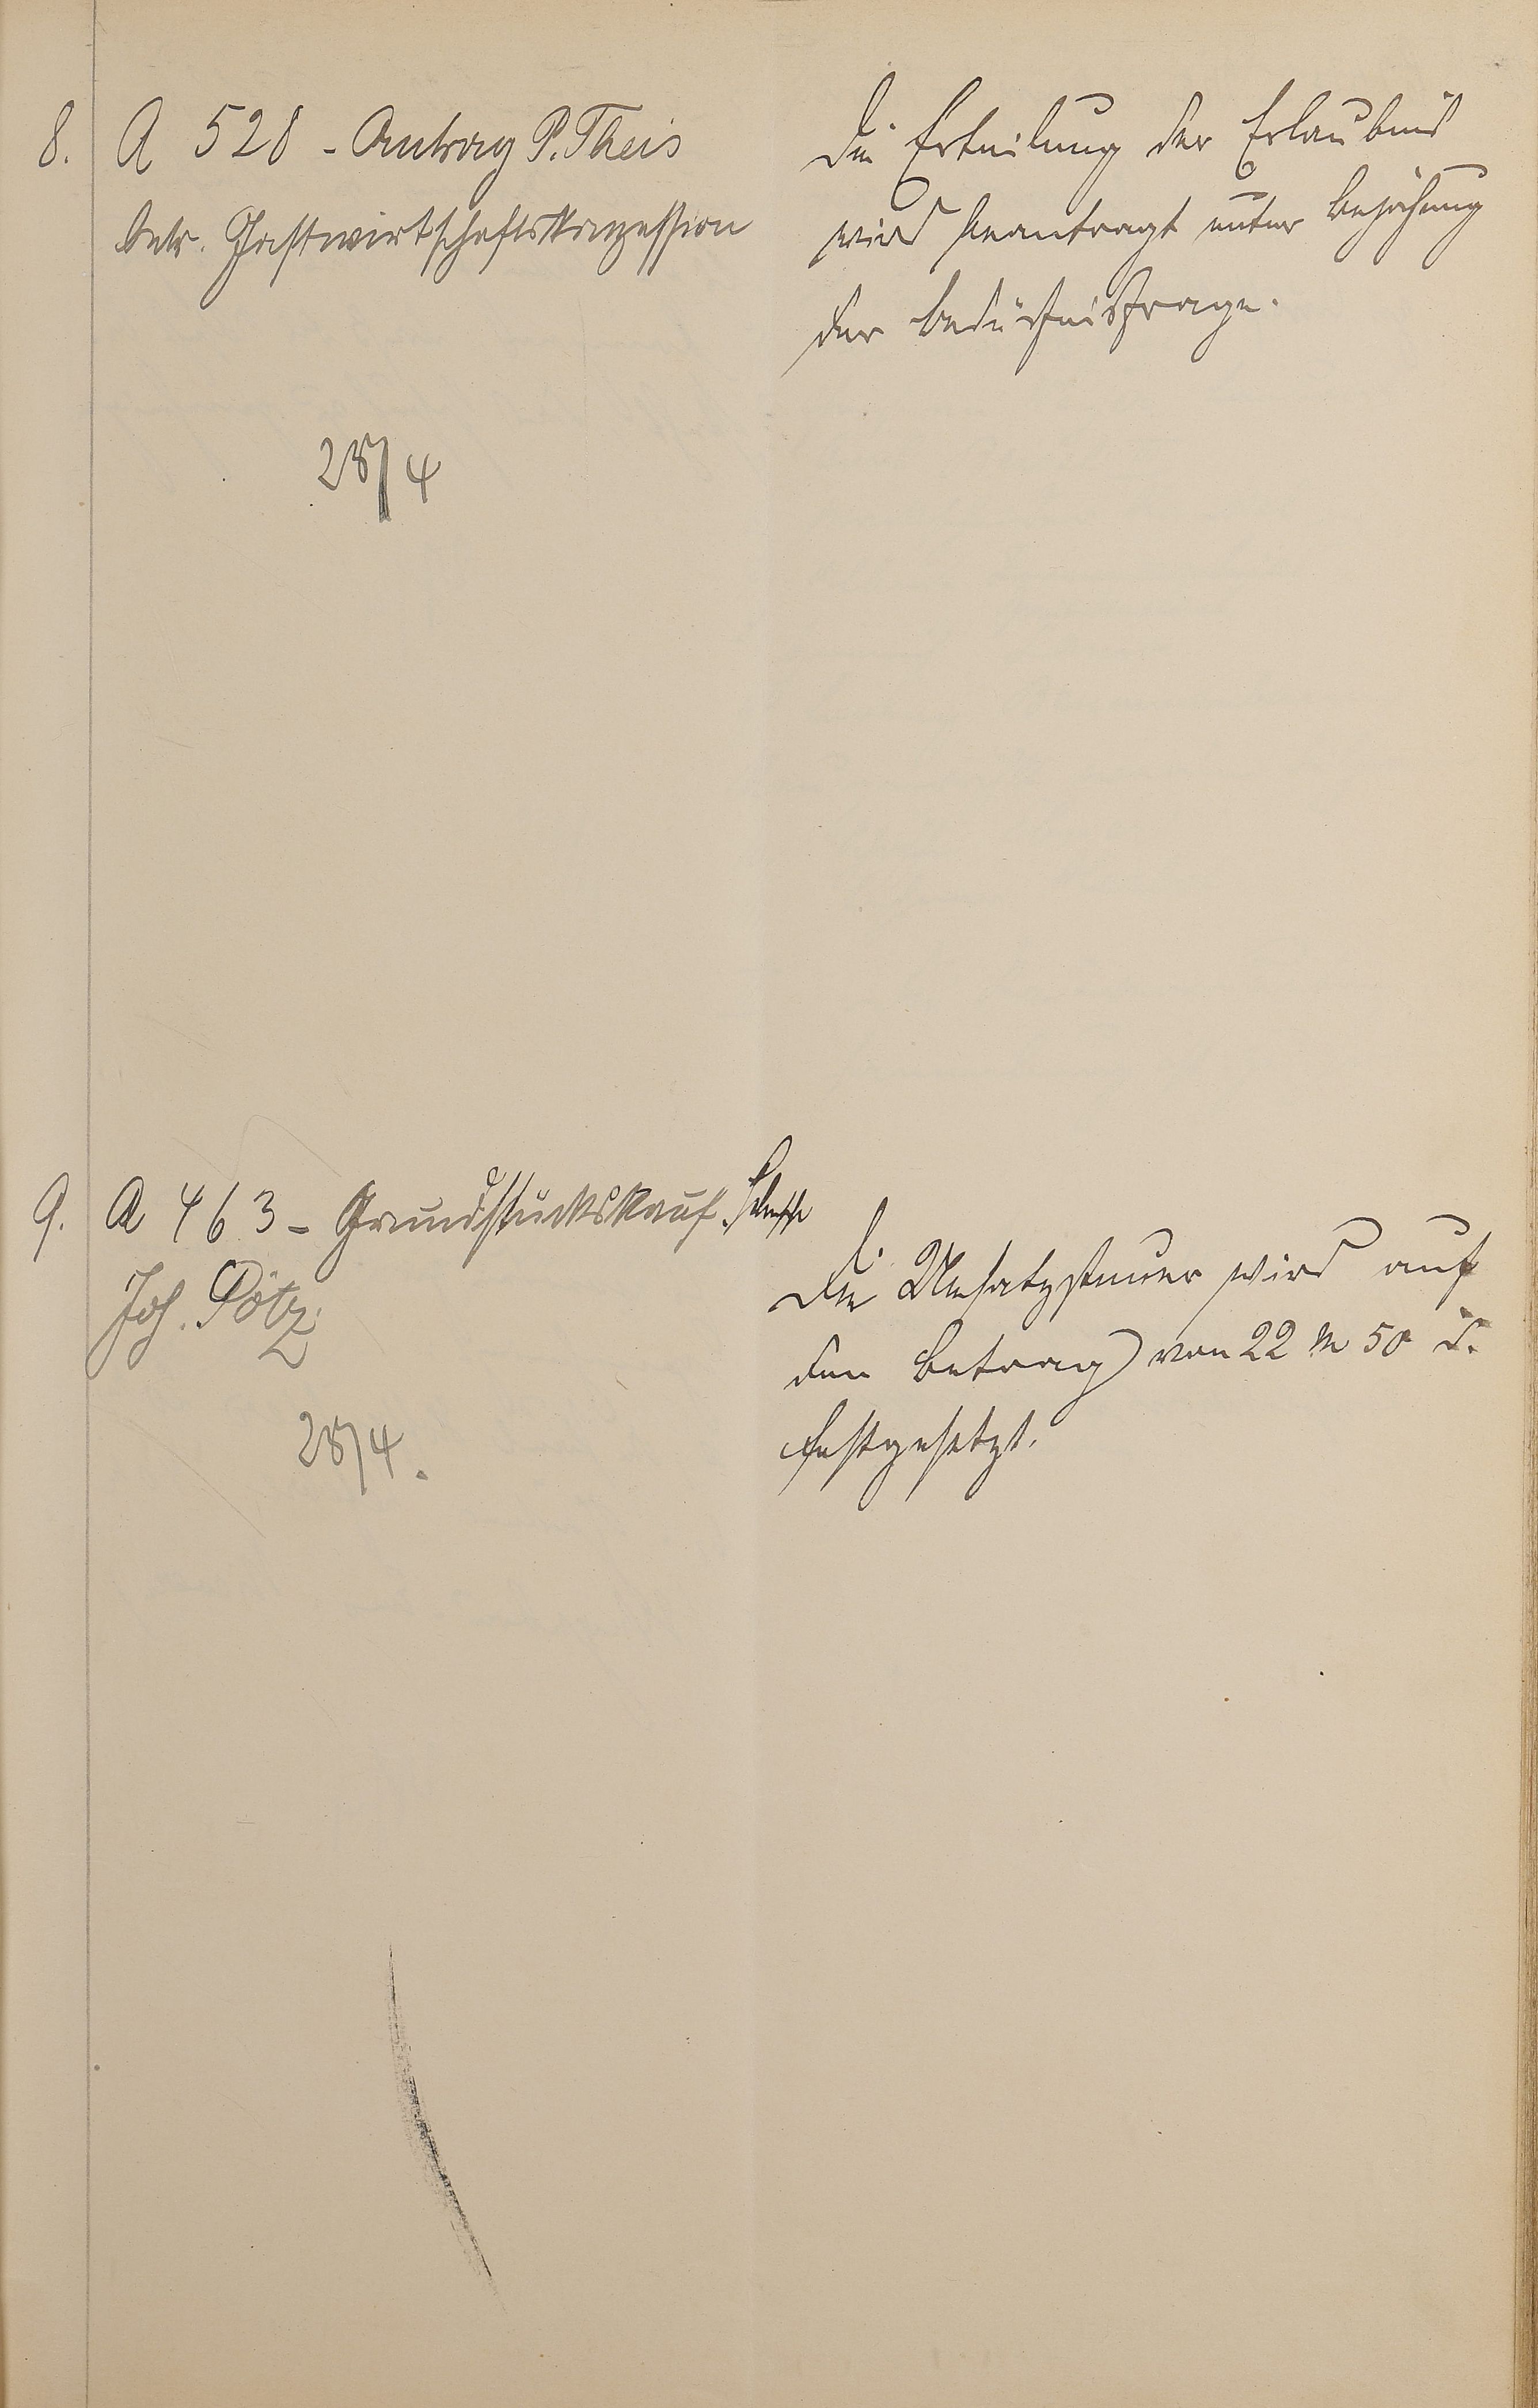 8. A 528 - Antrag P. Theis
betr. Gastwirtschaftskonzession
28/4
Die Erteilung der Erlaubnis
wird beantragt unter Bejahung
der Bedürfnisfrage.
9. A 463 - Grundstückskauf
Joh. Pötz.
28/4.
Die Umsatzsteuer wird auf
den Betrag von 22 M 50 d.
festgesetzt.